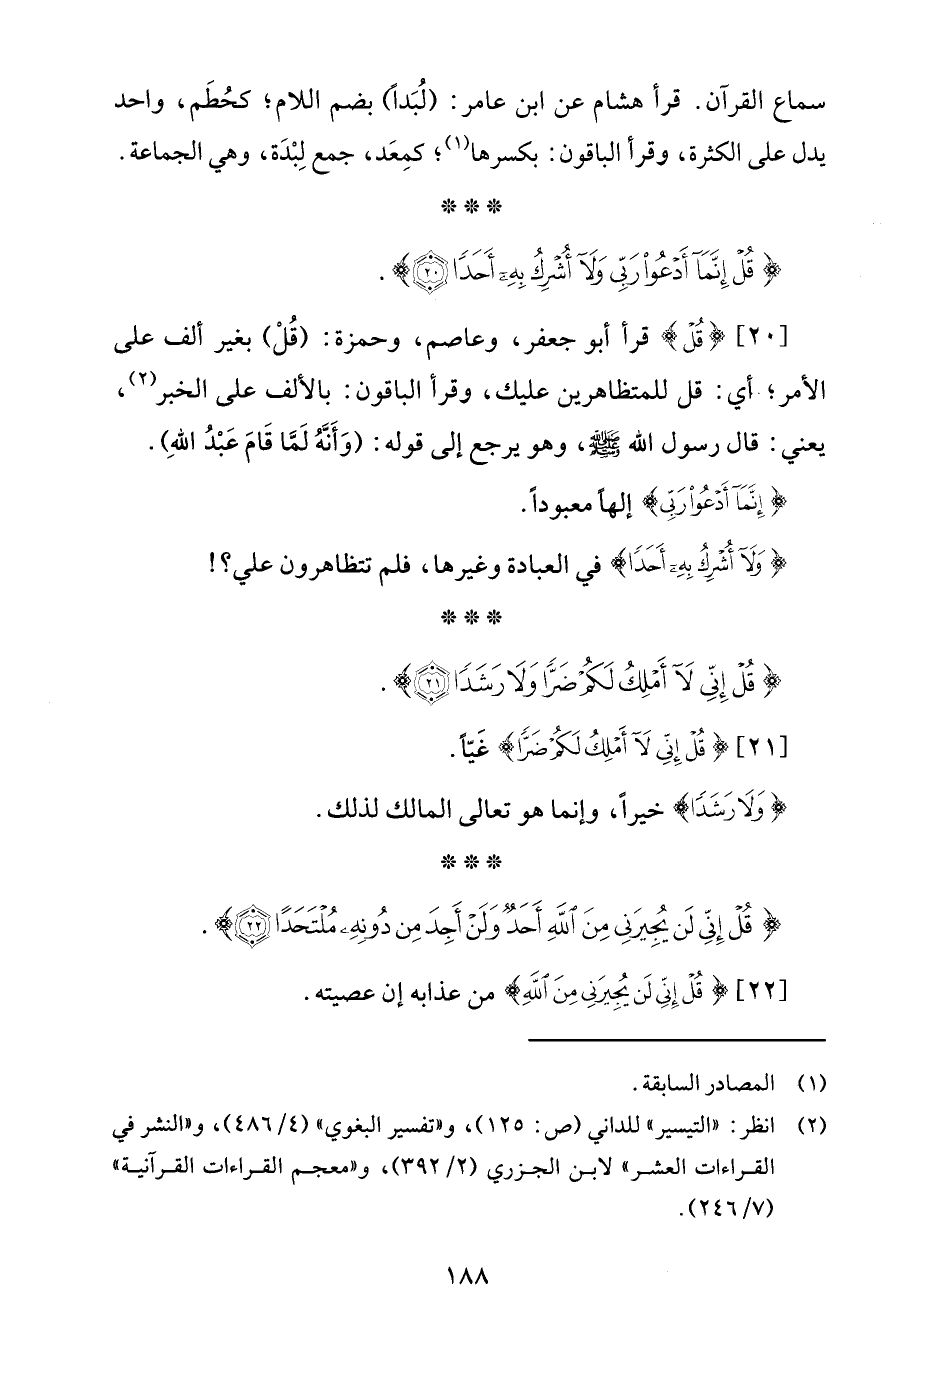 سماع القرآن. قرأ هشام عن ابن عامر: (لُبَداً) بضم اللام؛ كحُطَم، واحد
يدل على الكثرة، وقرأ الباقون: بكسرها(١)؛ كمِعَد، جمع لِبْدَة، وهي الجماعة.
* * *
﴿قُلْ إِنَّمَآ أَدْعُوا۟ رَبِّى وَلَآ أُشْرِكُ بِهِۦٓ أَحَدًا ٢٠﴾.
[٢٠] ﴿قُلْ﴾ قرأ أبو جعفر، وعاصم، وحمزة: (قُلْ) بغير ألف على
الأمر؛ أي: قل للمتظاهرين عليك، وقرأ الباقون: بالألف على الخبر(٢)،
يعني: قال رسول الله ﷺ، وهو يرجع إلى قوله: (وَأَنَّهُ لَمَّا قَامَ عَبْدُ اللهِ).
﴿إِنَّمَآ أَدْعُوا۟ رَبِّى﴾ إلهاً معبوداً.
﴿وَلَآ أُشْرِكُ بِهِۦٓ أَحَدًا﴾ في العبادة وغيرها، فلم تتظاهرون علي؟!
* * *
﴿قُلْ إِنِّى لَآ أَمْلِكُ لَكُمْ ضَرًّا وَلَا رَشَدًا ٢١﴾.
[٢١] ﴿قُلْ إِنِّى لَآ أَمْلِكُ لَكُمْ ضَرًّا﴾ غَيّاً.
﴿وَلَا رَشَدًا﴾ خيراً، وإنما هو تعالى المالك لذلك.
* * *
﴿قُلْ إِنِّى لَن يُجِيرَنِى مِنَ ٱللَّهِ أَحَدٌ وَلَنْ أَجِدَ مِن دُونِهِۦ مُلْتَحَدًا ٢٢﴾.
[٢٢] ﴿قُلْ إِنِّى لَن يُجِيرَنِى مِنَ ٱللَّهِ﴾ من عذابه إن عصيته.
(١) المصادر السابقة.
(٢) انظر: «التيسير» للداني (ص: ١٢٥)، و«تفسير البغوي» (٤/ ٤٨٦)، و«النشر في
القراءات العشر» لابن الجزري (٢/ ٣٩٢)، و«معجم القراءات القرآنية»
(٧/ ٢٤٦).
١٨٨